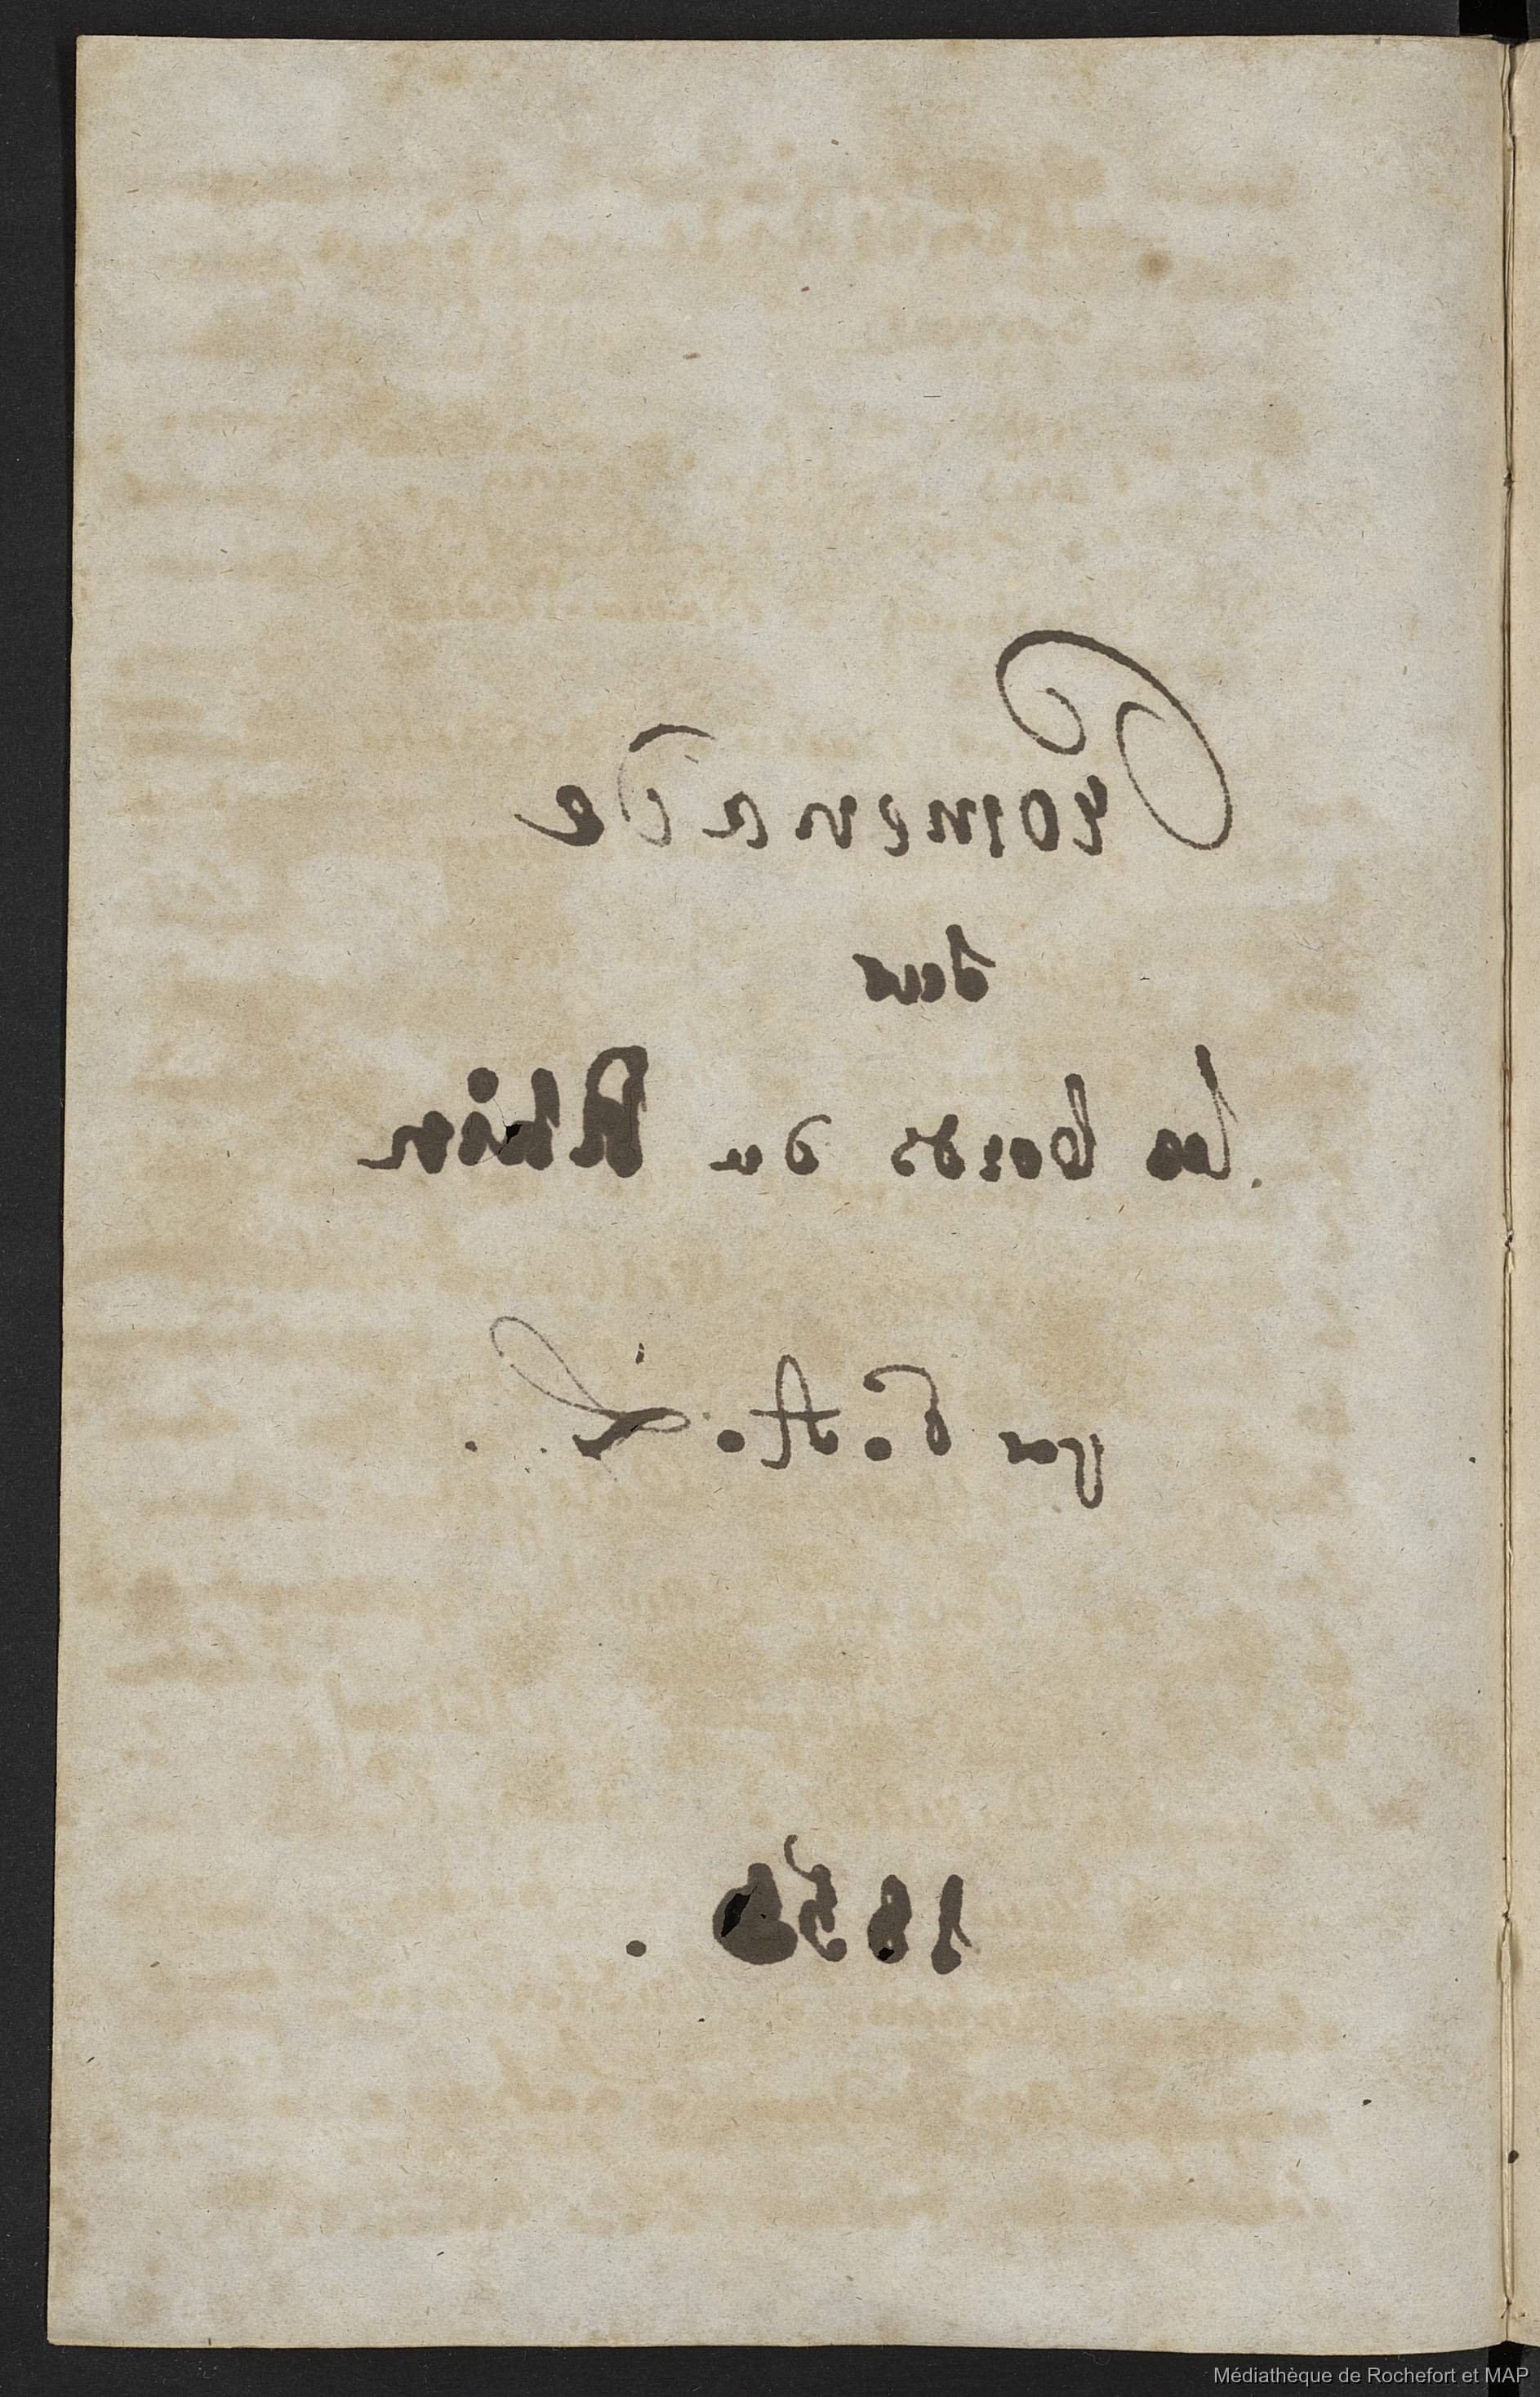 Promenade
sur
les bords du Rhin
par
1858.
Médiathèque de Rochefort et MAP